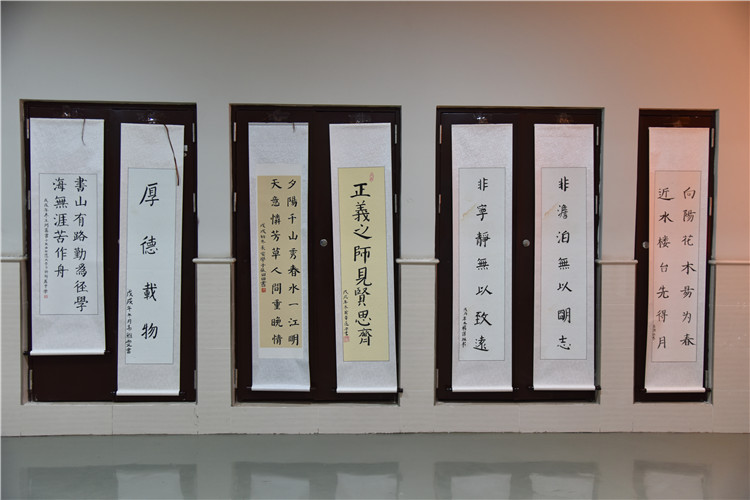 向陽花木易为春
近水楼台先得月
非澹泊無以明志
非寧靜無以致遠
正義之師見賢思齊
夕陽千山秀春水一江明
天意憐芳草人間重晚情
厚德載物
書山有路勤爲径學
海無涯苦作舟